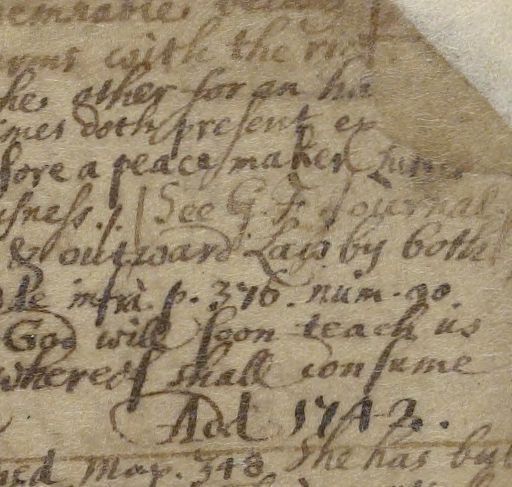 with the
the other for an ha
times doth present ex
fore a peace maker
usness. See G. F. Journal.
& outward Lays by both
infrà. p. 376. num. 90.
God will soon teach us
whereof shall consume
Add 1742.
Map. 348 She has but